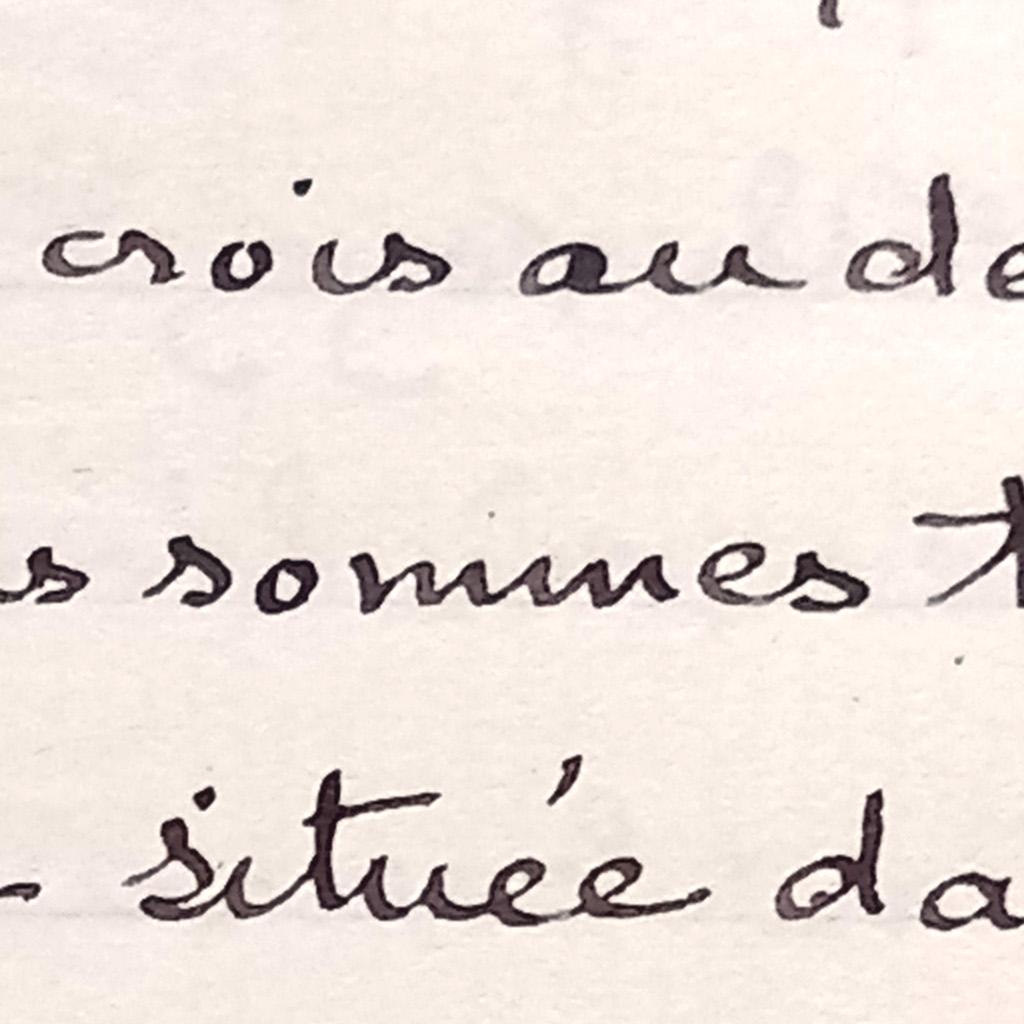 crois au de
s sommes t
située da